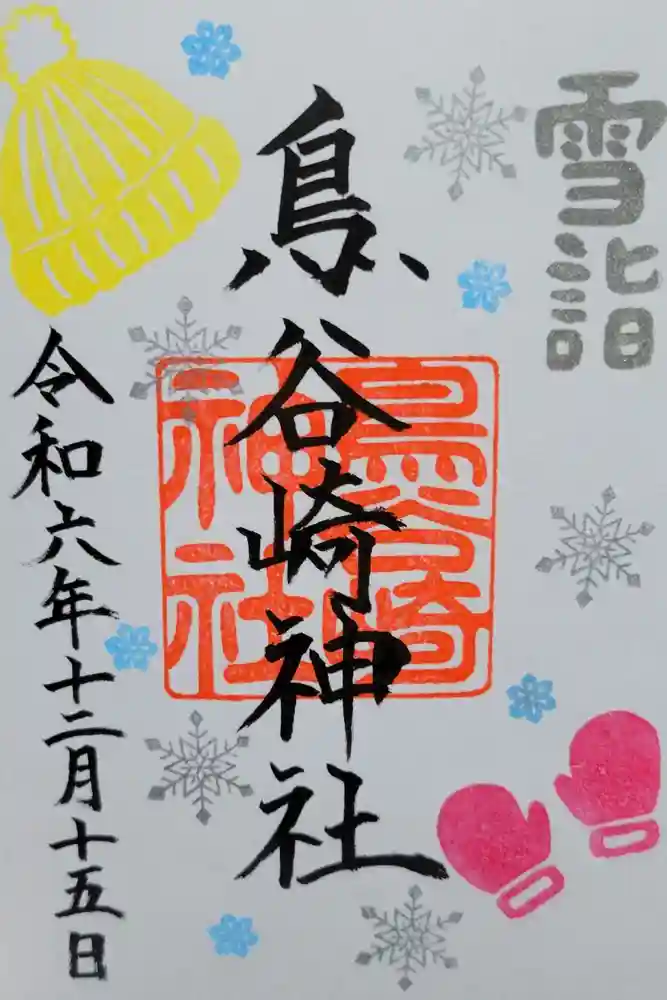 雪詣
鳥谷崎神社
鳥谷崎
神社
令和六年十二月十五日